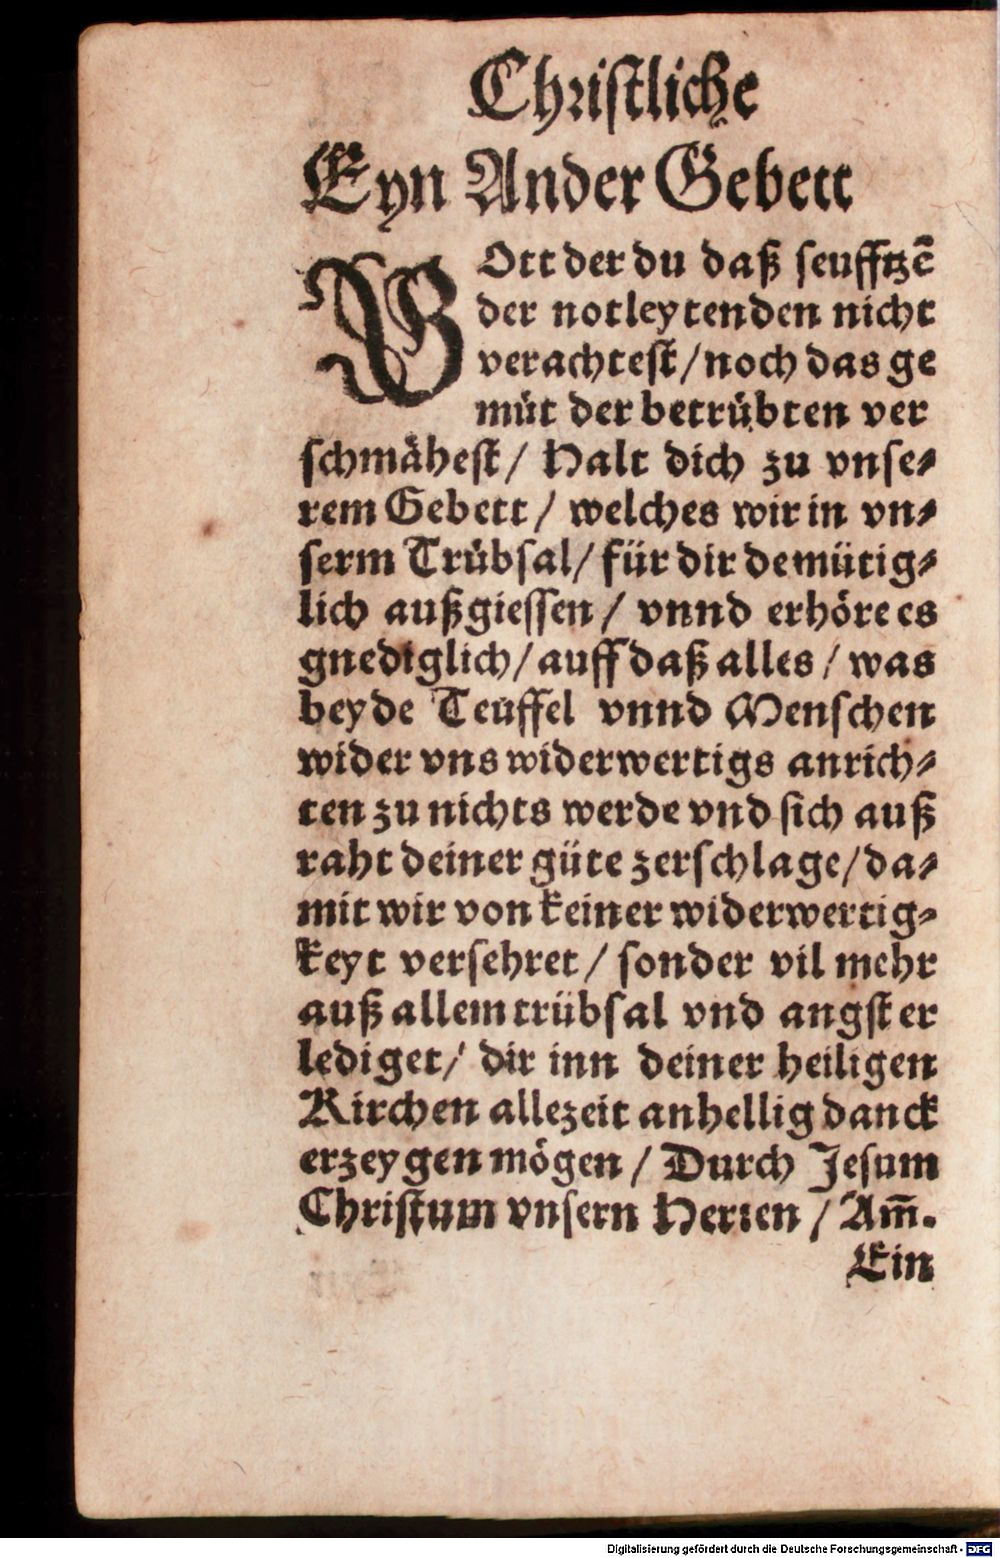 Christliche
Eyn Ander Gebett
GOtt der du daß seufftzē
der notleytenden nicht
verachtest/noch das ge
müt der betrübten ver
schmähest/ Halt dich zu vnse⸗
rem Gebett/ welches wir in vn⸗
serm Trübsal/ für dir demütig⸗
lich außgiessen/ vnnd erhöre es
gnediglich/ auff daß alles/ was
beyde Teuffel vnnd Menschen
wider vns widerwertigs anrich⸗
ten zu nichts werde vnd sich auß
raht deiner güte zerschlage/da⸗
mit wir von keiner widerwertig⸗
keyt versehret/ sonder vil mehr
auß allem trübsal vnd angst er
lediget/ dir inn deiner heiligen
Kirchen allezeit anhellig danck
erzeygen mögen/ Durch Jesum
Christum vnsern Herren/ Am̄.
Ein
Digitalisierung gefördert durch die Deutsche Forschungsgemeinschaft - DFG